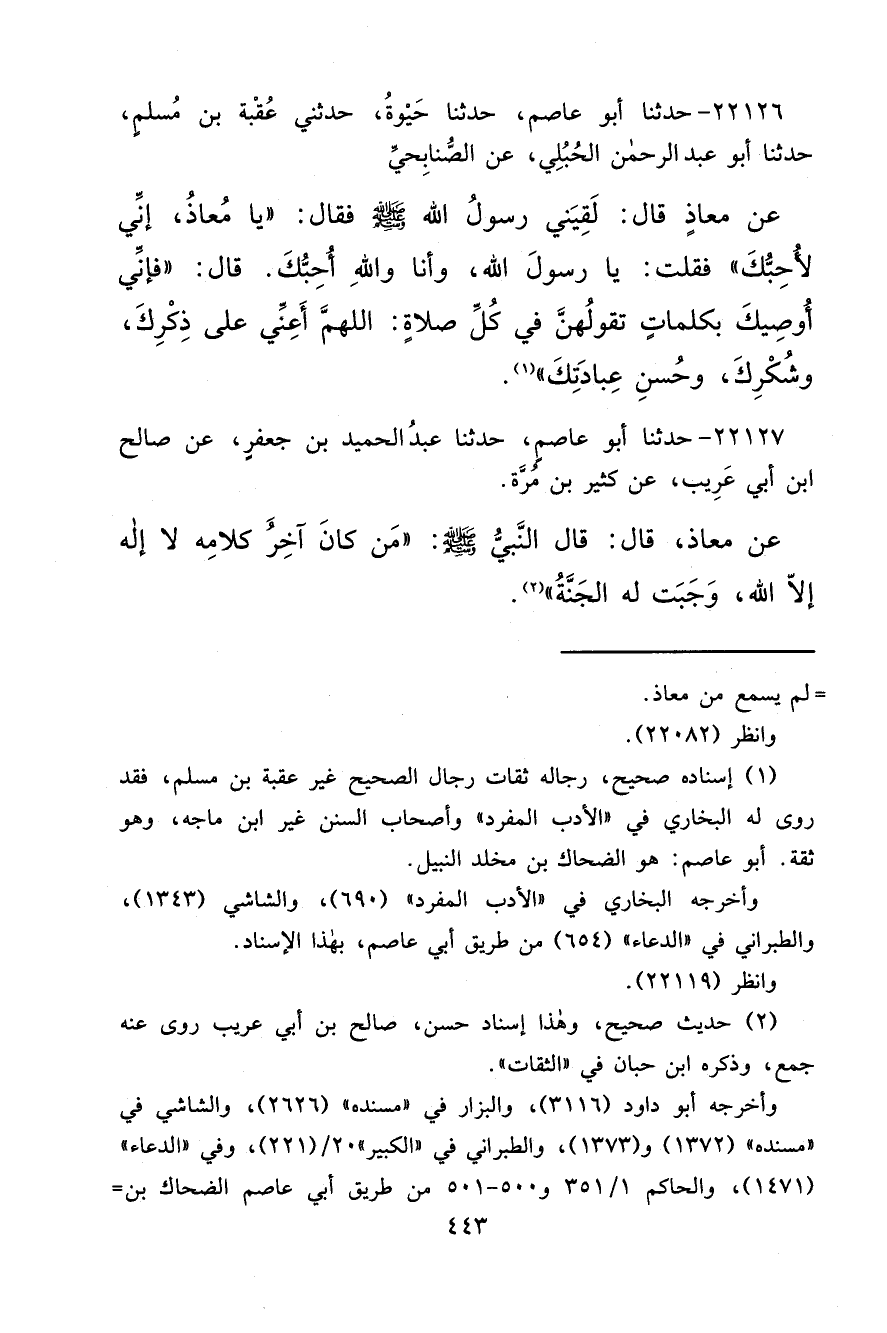 ٢٢١٢٦- حدثنا أبو عاصم، حدثنا حَيْوةُ، حدثني عُقْبة بن مُسلمٍ،
حدثنا أبو عبد الرحمٰن الحُبُلِي، عن الصُّنابِحيِّ
عن معاذٍ قال: لَقِيَني رسولُ الله ﷺ فقال: «يا مُعاذُ، إنِّي
لأُحِبُّكَ» فقلت: يا رسولَ الله، وأنا واللهِ أُحِبُّكَ. قال: «فإنِّي
أُوصِيكَ بكلماتٍ تقولُهنَّ في كُلِّ صلاةٍ: اللهمَّ أَعِنِّي على ذِكْرِكَ،
وشُكْرِكَ، وحُسنِ عِبادَتِكَ»(١).
٢٢١٢٧- حدثنا أبو عاصمٍ، حدثنا عبدُ الحميد بن جعفرٍ، عن صالح
ابن أبي عَرِيب، عن كثير بن مُرَّة.
عن معاذ، قال: قال النَّبيُّ ﷺ: «مَن كانَ آخِرُ كلامِه لا إلٰه
إلاّ الله، وَجَبَت له الجَنَّةُ»(٢).
= لم يسمع من معاذ.
وانظر (٢٢٠٨٢).
(١) إسناده صحيح، رجاله ثقات رجال الصحيح غير عقبة بن مسلم، فقد
روى له البخاري في «الأدب المفرد» وأصحاب السنن غير ابن ماجه، وهو
ثقة. أبو عاصم: هو الضحاك بن مخلد النبيل.
وأخرجه البخاري في «الأدب المفرد» (٦٩٠)، والشاشي (١٣٤٣)،
والطبراني في «الدعاء» (٦٥٤) من طريق أبي عاصم، بهٰذا الإسناد.
وانظر (٢٢١١٩).
(٢) حديث صحيح، وهٰذا إسناد حسن، صالح بن أبي عريب روى عنه
جمع، وذكره ابن حبان في «الثقات».
وأخرجه أبو داود (٣١١٦)، والبزار في «مسنده» (٢٦٢٦)، والشاشي في
«مسنده» (١٣٧٢) و(١٣٧٣)، والطبراني في «الكبير» ٢٠/(٢٢١)، وفي «الدعاء»
(١٤٧١)، والحاكم ٣٥١/١ و٥٠٠-٥٠١ من طريق أبي عاصم الضحاك بن=
٤٤٣